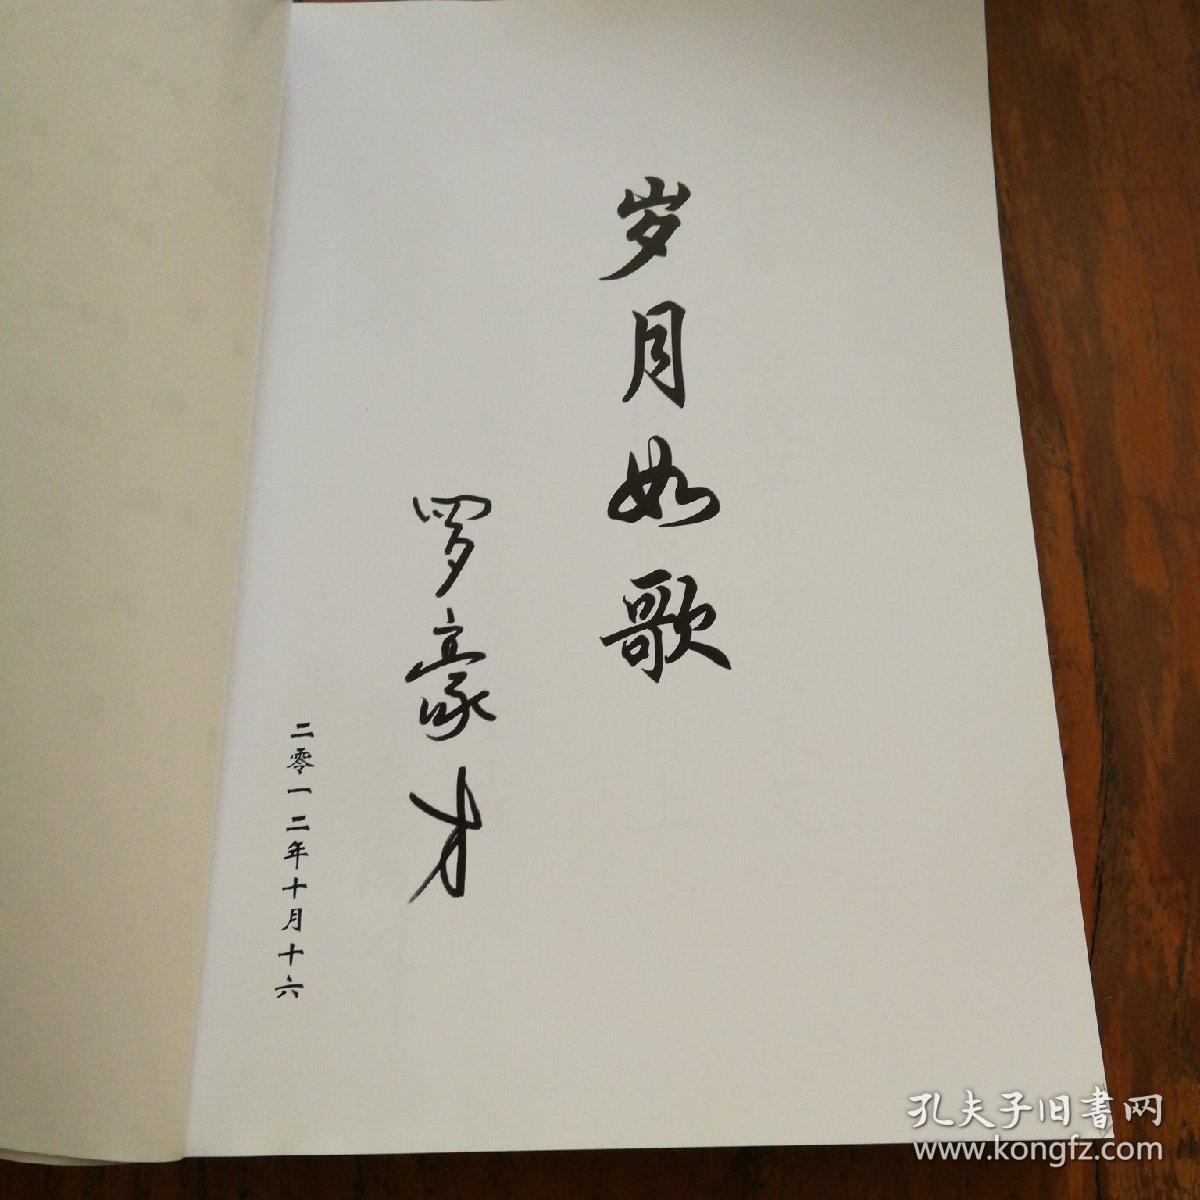 岁月如歌
罗豪才
二零一二年十月十六
孔夫子旧书网
www.kongfz.com